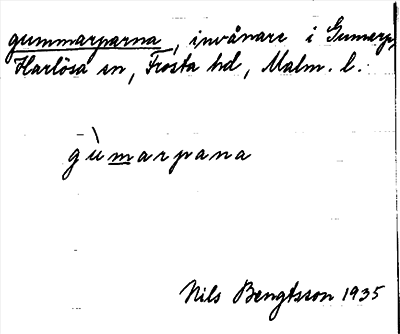 gummarparna, invånare i Gumarp,
Harlösa sn, Frosta hd, Malm. l.
gùmarpana
Nils Bengtsson 1935